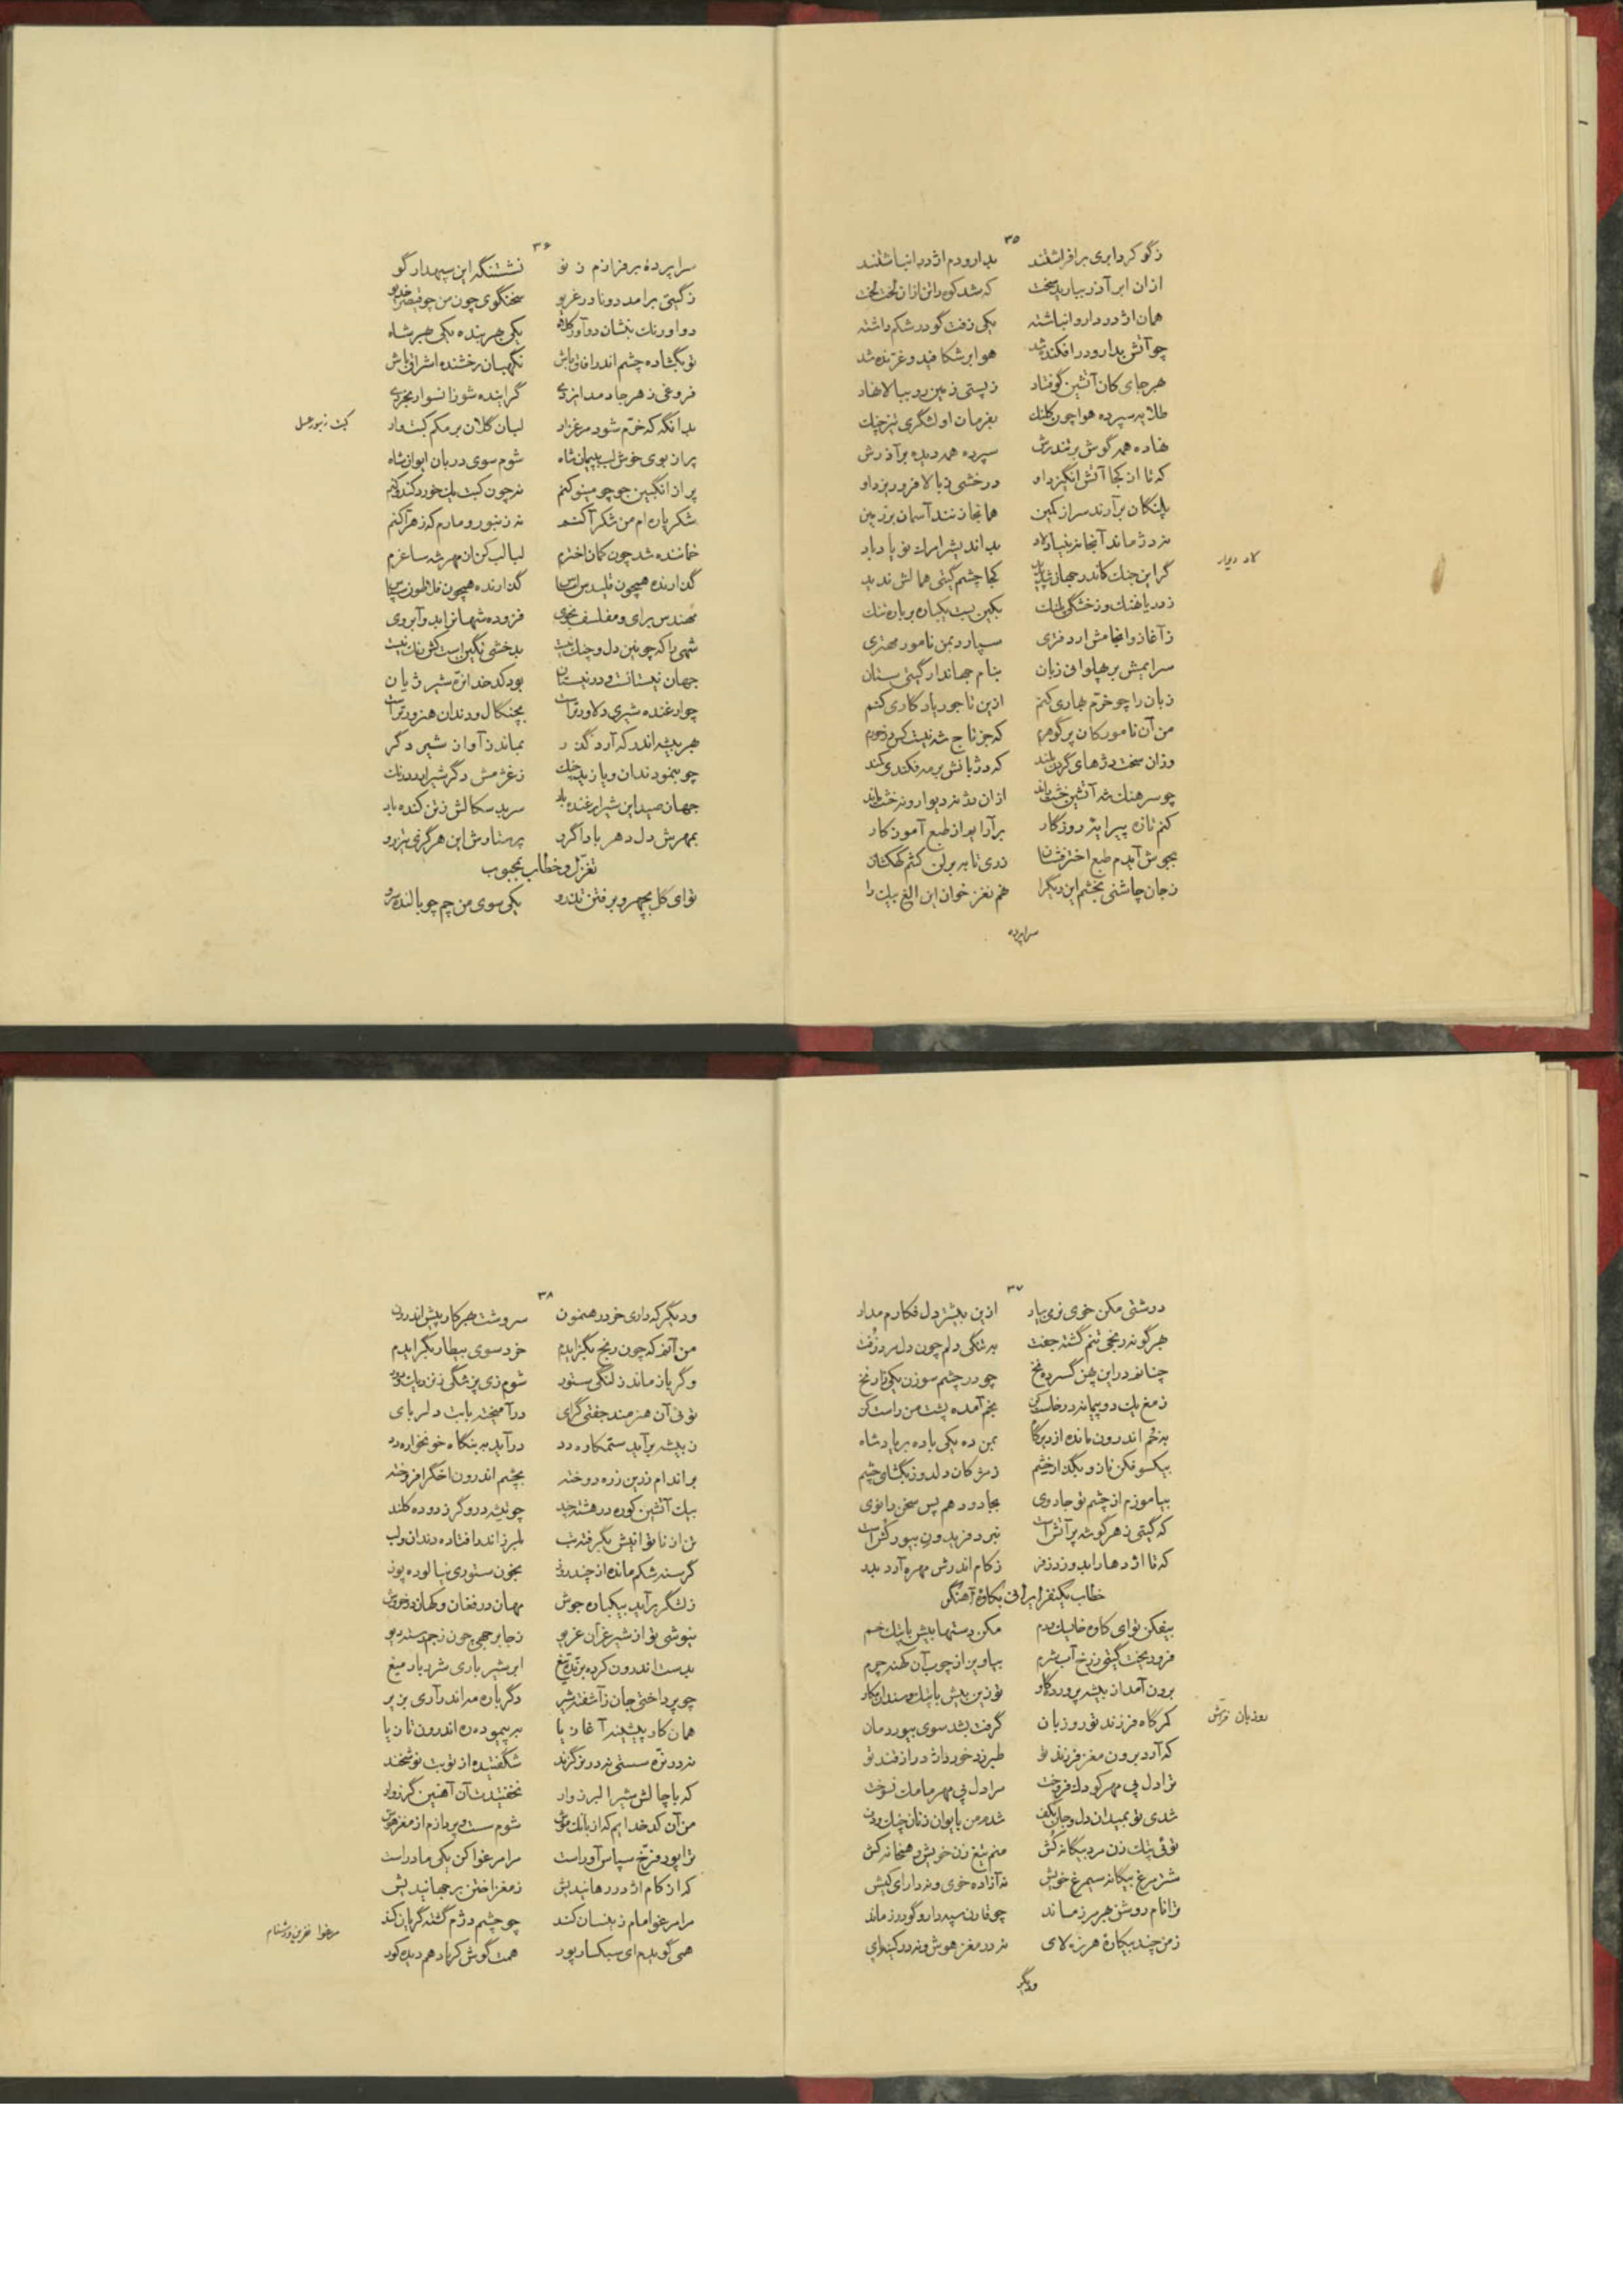 ۳۵
ز گو کرد ابری برافراشتند بدارو دم اژدر انباشتند
ازان ابر آذر ببارید سخت که شد کوه رائن ازان لخت لخت
همان اژدر دارو انباشته یکی زفت گو در شکم داشته
چو آتش بدارو در افکنده شد هوا بر شکافید و غرنده شد
هرجای کان آتشین گو فتاد ز پستی زمین رو ببالا نهاد
طلایه سپرده هوا چون کلنک بفرمان او لشگری تیز چنک
نهاده همه گوش بر تندرش سپرده همه دیده بر آذرش
که تا از کجا آتش انگیزد او درخشی ز بالا فرو ریزد او
پلنگان برآرند سر از کمین همانجا زنند آسمان بر زمین
نه دژ ماند آنجا نه بنیاد لاد بد اندیش را مرک نو یاد باد
لاد دیوار
گر این جنک کاندر جهان شد پدید کجا چشم گیتی همالش ندید
ز دریا نهنک و ز خشگی پلنک بکین بست یکباره بر باره تنک
ز آغاز و انجامش ار دفتری سپارد بمن نامور مهتری
سرایمش بر پهلوانی زبان بنام جهاندار گیتی ستان
زبان را چو خرم بهاری کنم ازین تاجور یادگاری کنم
من آن نامور کان پر گوهرم که جز تاج شه نیست کس درخورم
وزان سخت دژهای گردن بلند که دژبانش بر مه فکندی کمند
چو سرهنک شه آتشین خشت راند ازان دژ نه دیوار و نه خشت ماند
کنم تازه پیرایه روزگار برآرایم از طبع آموزگار
بجوش آیدم طبع اختر فشان زدی تا به برلن کشم کهکشان
ز جان چاشنی بخشم این دیگ را هم نغز خوان این الغ بیک را
سراپرده
۳۶
سراپرده برفرازم ز نو نشستنگه این سپهدار گو
ز گیتی برآمد دو نادر غریو سخنگوی چون من چو قیصر خدیو
دو اورنک بنشان دو آور کلاه یکی بهر بنده یکی بهر شاه
تو بگشاده چشم اندر آفاق باش نگهبان رخشنده اشراق باش
فروغی ز هرجا دمد ایزدی گراینده شو زانسو ار بخردی
بدانگه که خرم شود مرغزار لبان گلان بر مکم کبت وار
کبت زنبور عسل
پر از بوی خوش لب بپیمان شاه شوم سوی دربان ایوان شاه
پر از انگبین جو چو مینو کنم نه چون کبت پلید خورد کندو کنم
شکر پاره‌ام من شکر آکنم نه زنبور و مارم که زهر آکنم
خماننده شد چون کمان اخترم لبالب کن از مهر شه ساغرم
گذارنده همچون قلیدس اساس گذارنده همچون فلاطون سپاس
مهندس برای و مفلسف بخوی فزوده شهانرا بدو آبروی
شهی را که چونین دل و چنک نیست بدخشی نگین است کش رنک نیست
جهان نیستانست و در نیستان بود کدخدا نره شیر ژیان
چو ارغنده شیری دلاور تراست بچنگال و دندان هنرور تراست
هر بیشه اندر که آرد گذر بماند ز آواز شیر دگر
چو بنمود دندان و یازید چنک ز غژمش دگر شیر آمد درنک
جهان صید این شیر ارغنده باد سر بدسکالش ز تن کنده باد
بمهرش دل دهر بادا گرو پرستارش این هرگز تیزرو
تغزل و خطاب بمحبوب
تو ای گل بچهر و برفتن تذرو یکی سوی من چم چو بالنده سرو
۳۷
درشتی مکن خوی نرمی بیار ازین بیشتر دل فکارم مدار
هرگونه رنجی تنم گشته جفت به تنگی دلم چون دل مرد زفت
چنانم در این پهن گسترده نخ چو در چشم سوزن یکی تار نخ
ز مغ یک دو پیمانه درخواست کن بخم آمده پشت من راست کن
به خم اندرون مانده از دیرگاه بمن ده یکی باده بر یاد شاه
بیکسو فکن ناز و بگذار خشم ز مژگان دلدوز بگشای چشم
بیاموزم از چشم تو جادوی بجادو دهم پس سخن را نوی
که گیتی ز هر گوشه پر آتش است نبرد فریدون بیور کش است
که تا اژدها را بدوزد زفر ز کام اندرش مهره آرد بدر
خطاب یکنفر ایرانی بکاوه آهنگر
بیفکن تو ای کاوه خایسک و دم مکن دستها پیش پاپتک خم
فرو ریخت گیتی ز رخ آب شرم بیاویز از چوب آن کهنه چرم
برون آمد از بیشه پرورده گاو تو زین بیش با پتک و سندان مکاو
کمرگاه فرزند تو روزبان گرفت بشد سوی بیور دمان
روزبان فراش
که آرد برون مغز فرزند تو طبرزد خورد اژدر از قند تو
ترا دل پی مهر کودک فروخت مرا دل پی مهر مامک بسوخت
شدی تو بمیدان دل و جان بکف شدم من بایوان زنان چنک و دف
توئی پتک زن مرد بیگانه کش منم تیغ زن خویش و همخانه کش
شتر مرغ بیگانه سیمرغ خویش نه آزاده خوی و نه دارای کیش
ترا نام روشن بهر مرز ماند چو قارن سپهدار و گودرز ماند
ز من چند بیکاره هرزه لای نه در مغز هوش و نه در کینه رای
ودیگر
۳۸
ودیگر که داری خرد رهنمون سروشت بهر کار پیش اندرون
من آنم که چون رنج بگزایدم خرد سوی بیطار بگرایدم
وگر باز ماند ز لنگی ستور شوم زی پزشگی
توئی آن هنرمند جفتی گرای درآمیخته باب دلربای
ز بیشه برآید ستمکاره دد درآید به بنگاه خونخواره دد
براندام زرین زره دوخته بچشم اندرون اخگر افروخته
بیک آتشین کوره در هشته چند چو تیشه درودگر زدوده کلند
تن از ناتوانیش بگرفته تب بلرز اندر افتاده دندان و لب
گرسنه شکم مانده از چند روز بخون ستوری نیالوده پوز
ز لشگر برآید بیکباره جوش مهان در فغان و کهان در خروش
نیوشی تو از شیر غران غریو ز جا برجهی چون ز جم تند دیو
بدست اندرون کرده برنده تیغ ابر شیر باری شرر بار میغ
چو پرداختی جان ز آشفته شیر دگرباره مه اندر آری بزیر
همان کار پیشینه آغازیا به پیموده ره اندرون تازیا
نه در تره سستی نه در بز گزند شگفتیده از تو بت نوشخند
که با چالش شیر البرزوار نخفتیدت آن آهنین گرزوار
من آن کدخدایم که از بانک موش شوم سست و پردازم از مغز هوش
ترا پور فرخ سپاس آور است مرا مرغوا کن یکی مادر است
که از کام اژدر رهانیدیش ز مغز اختن برجهانیدیش
مرا مرغوا مام زینسان کند چو چشم دژم گشته گریان کند
مرغوا نفرین و دشنام
همی گویدم ای سبکسار پور همت گوش کر باد هم دیده کور